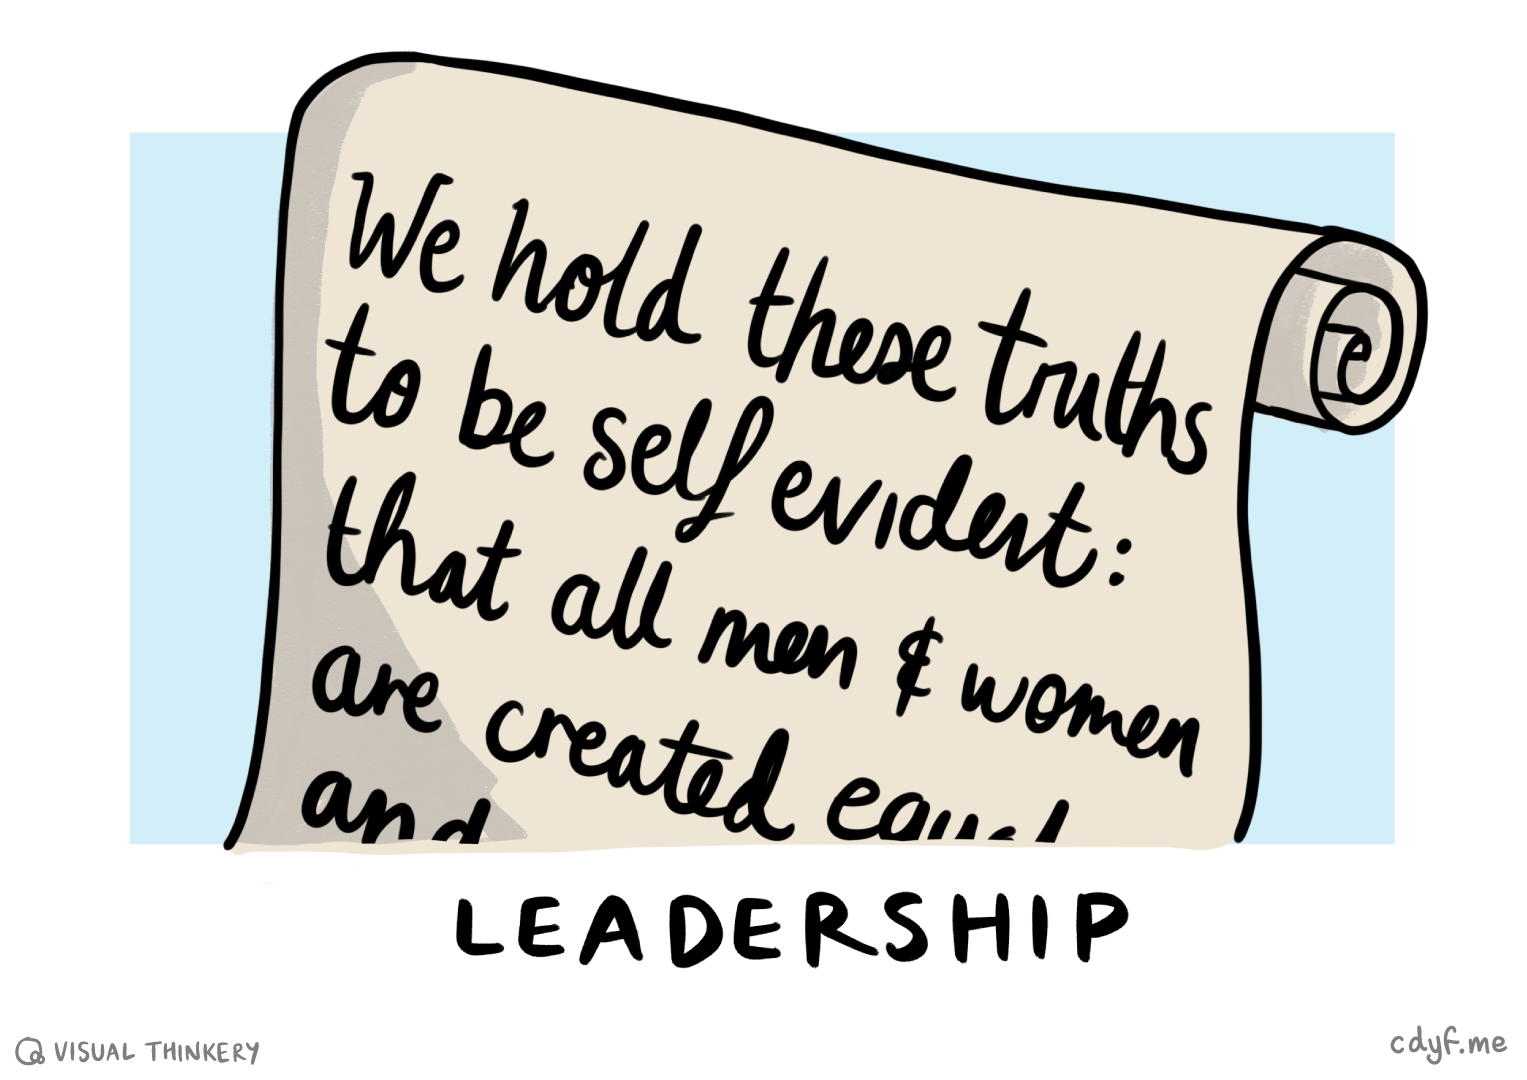 We hold these truths
to be self evident:
that all men & women
are created equal
and
LEADERSHIP
@ VISUAL THINKERY
cdyf.me